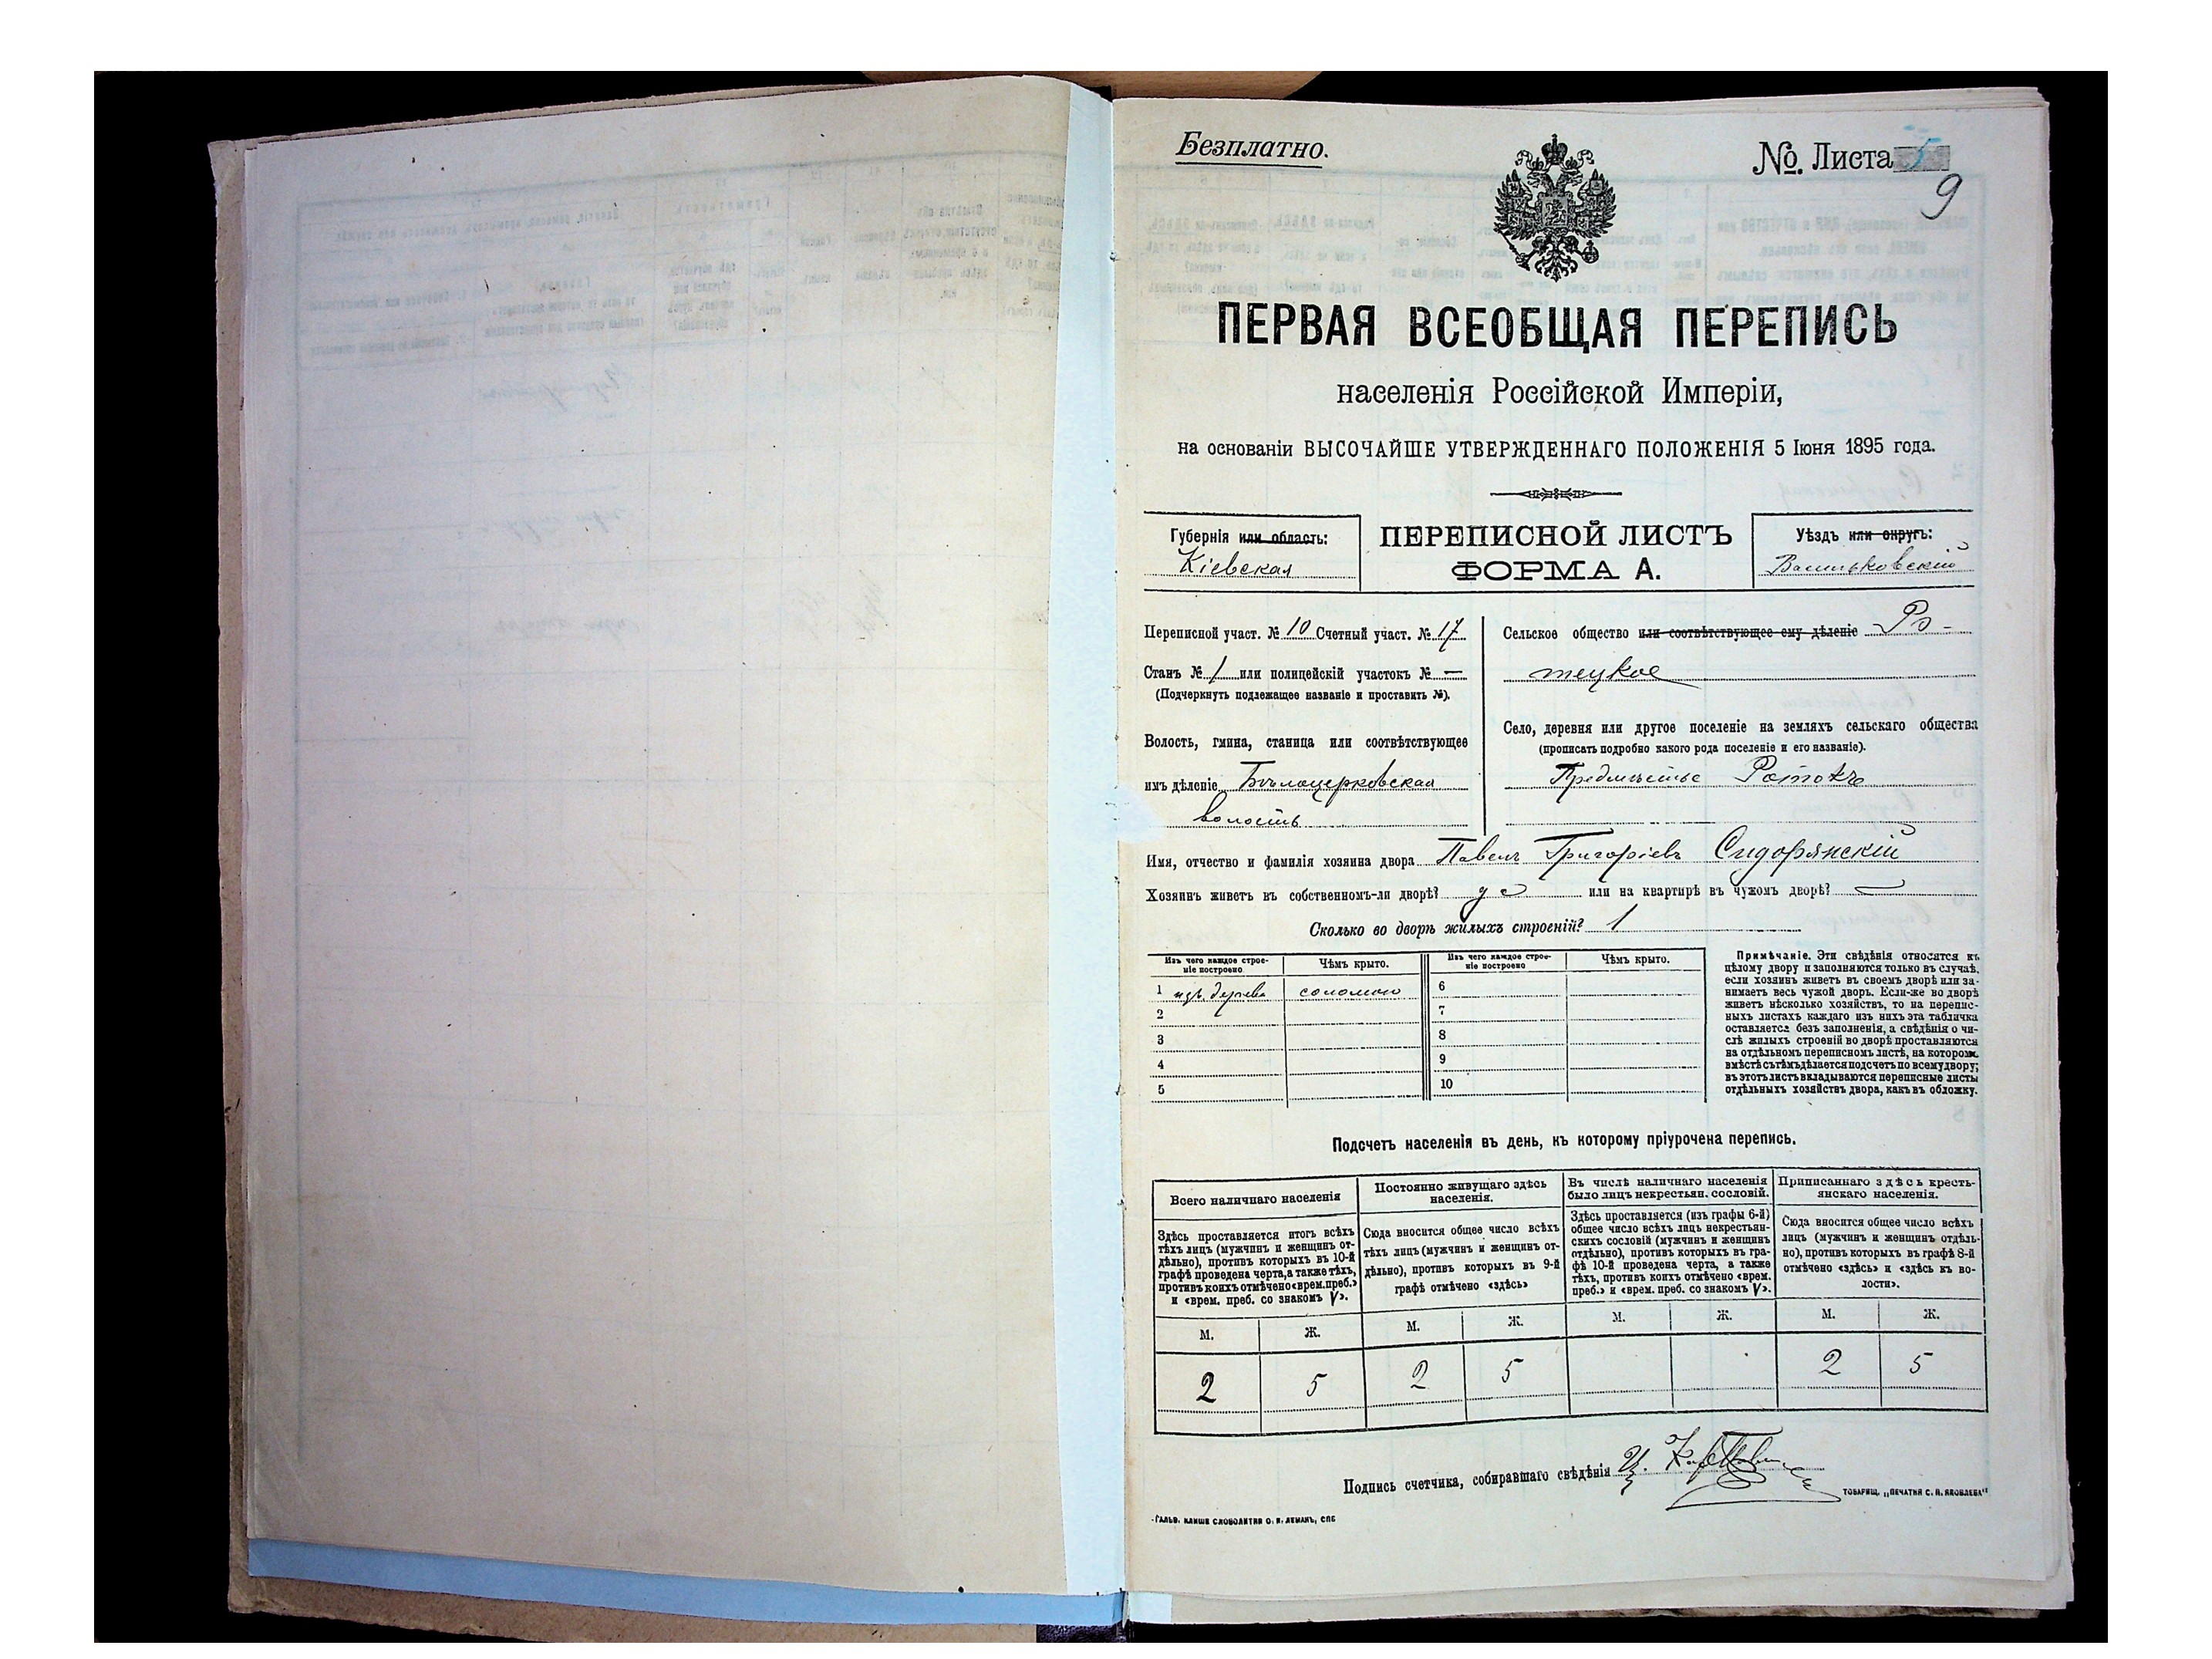 Безплатно.
№ Листа 5
9
ПЕРВАЯ ВСЕОБЩАЯ ПЕРЕПИСЬ
населенія Россійской Имперіи,
на основаніи ВЫСОЧАЙШЕ УТВЕРЖДЕННАГО ПОЛОЖЕНІЯ 5 Іюня 1895 года.
Губернія или область:
Кіевская
ПЕРЕПИСНОЙ ЛИСТЪ
ФОРМА А.
Уѣздъ или округъ:
Васильковскій
Переписной участ. № 10 Счетный участ. № 17
Станъ № 1 или полицейскій участокъ № —
(Подчеркнуть подлежащее названіе и проставить №).
Волость, гмина, станица или соотвѣтствующее
имъ дѣленіе Бѣлоцерковская
волость
Сельское общество или соотвѣтствующее ему дѣленіе Ро-
тецкое
Село, деревня или другое поселеніе на земляхъ сельскаго общества
(прописать подробно какого рода поселеніе и его названіе).
Предмѣстье Ротокъ
Имя, отчество и фамилія хозяина двора Павелъ Григоріевъ Сидорянскій
Хозяинъ живетъ въ собственномъ-ли дворѣ? да или на квартирѣ въ чужомъ дворѣ? —
Сколько во дворѣ жилыхъ строеній? 1
Изъ чего каждое строе-
ніе построено
Чѣмъ крыто.
1 изъ дерева соломою
2
3
4
5
Изъ чего каждое строе-
ніе построено
Чѣмъ крыто.
6
7
8
9
10
Примѣчаніе. Эти свѣдѣнія относятся къ
цѣлому двору и заполняются только въ случаѣ,
если хозяинъ живетъ въ своемъ дворѣ или за-
нимаетъ весь чужой дворъ. Если-же во дворѣ
живетъ нѣсколько хозяйствъ, то на перепис-
ныхъ листахъ каждаго изъ нихъ эта табличка
оставляется безъ заполненія, а свѣдѣнія о чи-
слѣ жилыхъ строеній во дворѣ проставляются
на отдѣльномъ переписномъ листѣ, на которомъ
вмѣстѣ съ тѣмъ дѣлается подсчетъ по всему двору;
въ этотъ листъ вкладываются переписные листы
отдѣльныхъ хозяйствъ двора, какъ въ обложку.
Подсчетъ населенія въ день, къ которому пріурочена перепись.
Всего наличнаго населенія
Здѣсь проставляется итогъ всѣхъ
тѣхъ лицъ (мужчинъ и женщинъ от-
дѣльно), противъ которыхъ въ 10-й
графѣ проведена черта, а также тѣхъ,
противъ коихъ отмѣчено «врем. преб.»
и «врем. преб. со знакомъ V».
М. Ж.
2 5
Постоянно живущаго здѣсь
населенія.
Сюда вносится общее число всѣхъ
тѣхъ лицъ (мужчинъ и женщинъ от-
дѣльно), противъ которыхъ въ 9-й
графѣ отмѣчено «здѣсь»
М. Ж.
2 5
Въ числѣ наличнаго населенія
было лицъ некрестьян. сословій.
Здѣсь проставляется (изъ графы 6-й)
общее число всѣхъ лицъ некрестьян-
скихъ сословій (мужчинъ и женщинъ
отдѣльно), противъ которыхъ въ гра-
фѣ 10-й проведена черта, а также
тѣхъ, противъ коихъ отмѣчено «врем.
преб.» и «врем. преб. со знакомъ V».
М. Ж.
Приписаннаго здѣсь кресть-
янскаго населенія.
Сюда вносится общее число всѣхъ
лицъ (мужчинъ и женщинъ отдѣль-
но), противъ которыхъ въ графѣ 8-й
отмѣчено «здѣсь» и «здѣсь къ во-
лости».
М. Ж.
2 5
Подпись счетчика, собиравшаго свѣдѣнія
ТОВАРИЩ. „ПЕЧАТНЯ С. П. ЯКОВЛЕВА“
ГАЛЬВ. КЛИШЕ СЛОВОЛИТНИ О. И. ЛЕМАНЪ, СПБ